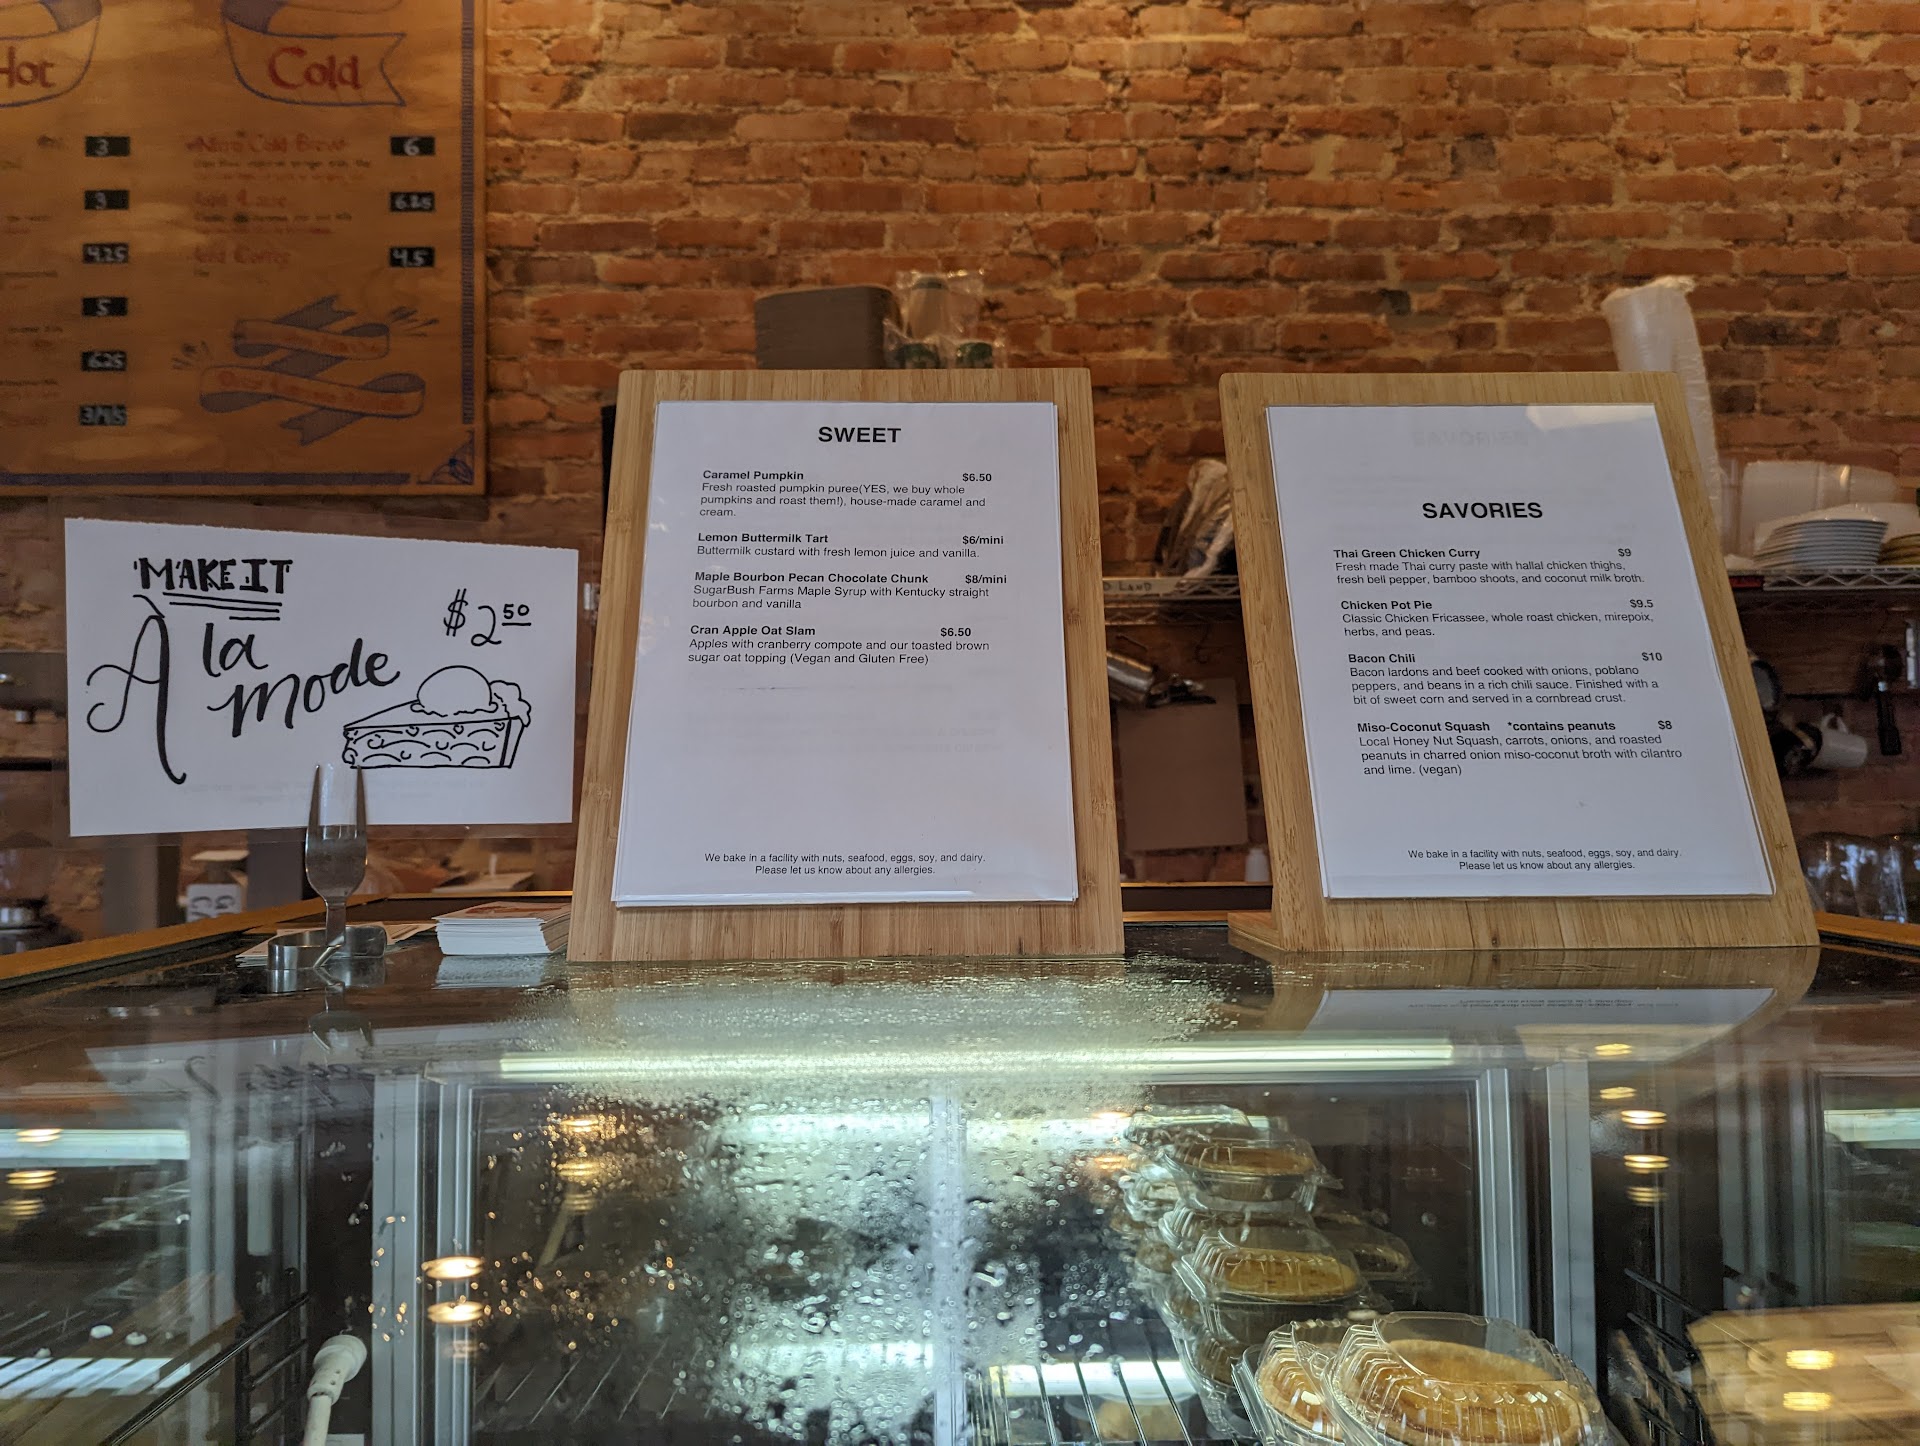 Hot
3
3
4.25
5
6.25
3/4.5
Cold
Nitro Cold Brew 6
6.25
Iced Coffee 4.5
MAKE IT
À la mode
$2.50
SWEET
Caramel Pumpkin $6.50
Fresh roasted pumpkin puree(YES, we buy whole
pumpkins and roast them!), house-made caramel and
cream.
Lemon Buttermilk Tart $6/mini
Buttermilk custard with fresh lemon juice and vanilla.
Maple Bourbon Pecan Chocolate Chunk $8/mini
SugarBush Farms Maple Syrup with Kentucky straight
bourbon and vanilla
Cran Apple Oat Slam $6.50
Apples with cranberry compote and our toasted brown
sugar oat topping (Vegan and Gluten Free)
We bake in a facility with nuts, seafood, eggs, soy, and dairy.
Please let us know about any allergies.
SAVORIES
Thai Green Chicken Curry $9
Fresh made Thai curry paste with hallal chicken thighs,
fresh bell pepper, bamboo shoots, and coconut milk broth.
Chicken Pot Pie $9.5
Classic Chicken Fricassee, whole roast chicken, mirepoix,
herbs, and peas.
Bacon Chili $10
Bacon lardons and beef cooked with onions, poblano
peppers, and beans in a rich chili sauce. Finished with a
bit of sweet corn and served in a cornbread crust.
Miso-Coconut Squash *contains peanuts $8
Local Honey Nut Squash, carrots, onions, and roasted
peanuts in charred onion miso-coconut broth with cilantro
and lime. (vegan)
We bake in a facility with nuts, seafood, eggs, soy, and dairy.
Please let us know about any allergies.